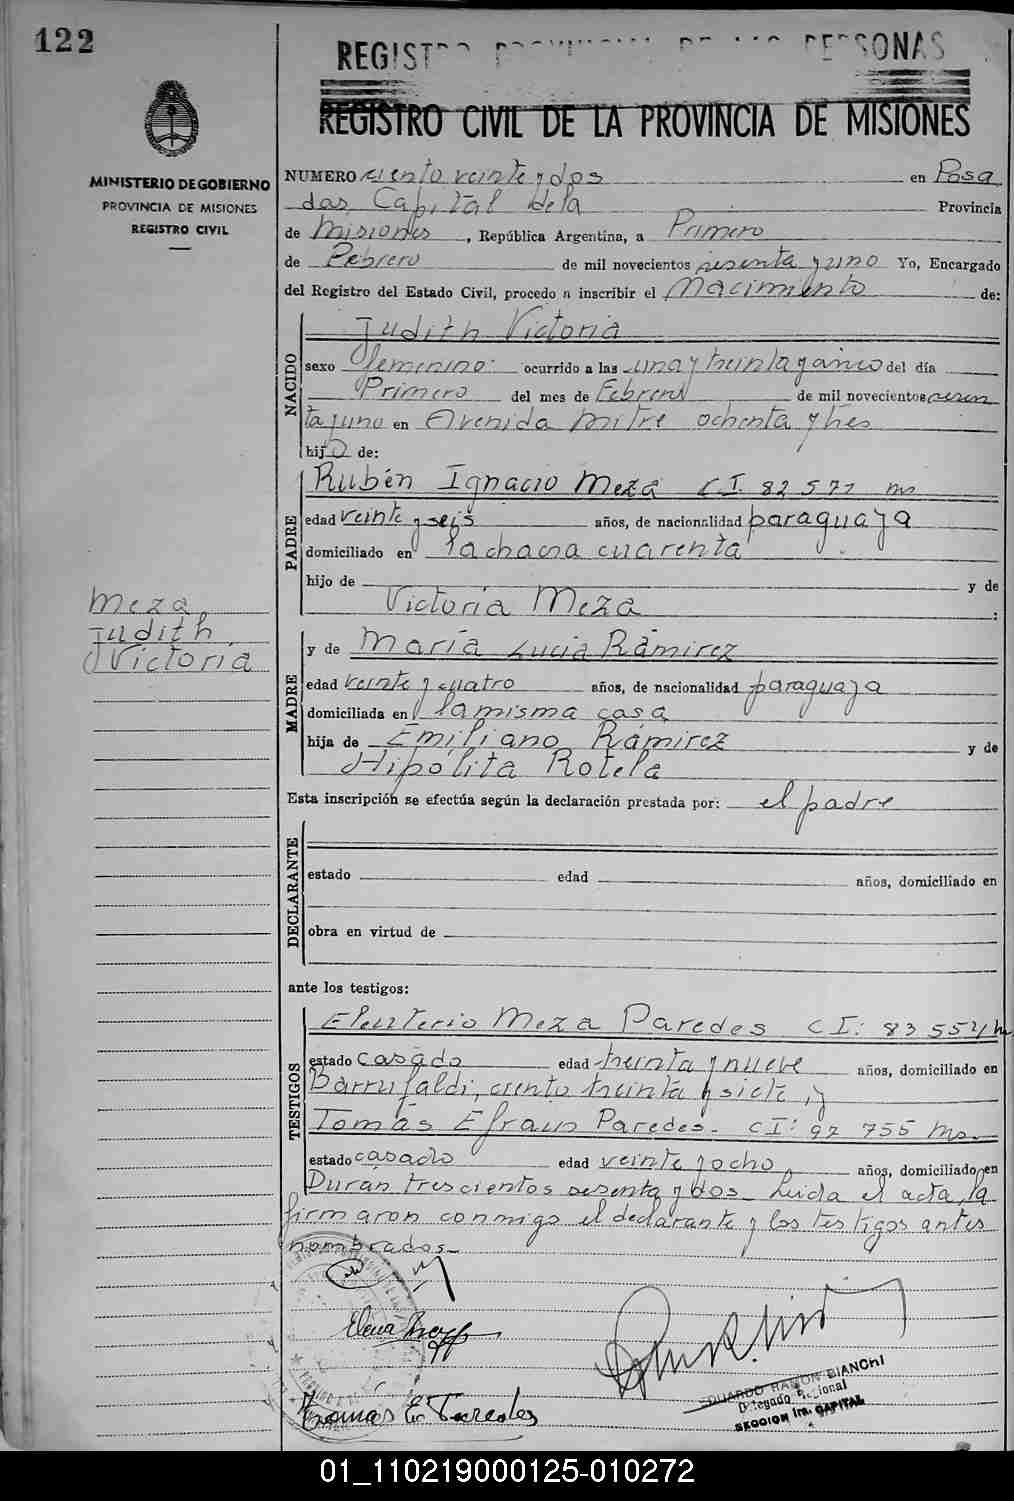 122
REGISTRO PROVINCIAL DE LAS PERSONAS
REGISTRO CIVIL DE LA PROVINCIA DE MISIONES
MINISTERIO DE GOBIERNO
PROVINCIA DE MISIONES
REGISTRO CIVIL
NUMERO ciento veinte y dos en Posa
das, Capital dela Provincia
de Misiones, República Argentina, a Primero
de Febrero de mil novecientos sesenta y uno Yo, Encargado
del Registro del Estado Civil, procedo a inscribir el Nacimiento de:
NACIDO
Judith Victoria
sexo femenino: ocurrido a las una y treinta y cinco del día
Primero del mes de Febrero de mil novecientos sesen
ta y uno en Avenida Mitre ochenta y tres
hija de:
PADRE
Rubén Ignacio Meza CI. 82 571 ms
edad veinte y seis años, de nacionalidad paraguaya
domiciliado en la chacra cuarenta
hijo de y de
Victoria Meza :
Meza
Judith
Victoria
MADRE
y de María Lucia Rámirez
edad veinte y cuatro años, de nacionalidad paraguaya
domiciliada en la misma casa
hija de Emiliano Rámirez y de
Hipólita Rotela
Esta inscripción se efectúa según la declaración prestada por: el padre
DECLARANTE
estado edad años, domiciliado en
obra en virtud de
ante los testigos:
TESTIGOS
Eleuterio Meza Paredes CI: 83 554
estado casado edad treinta y nueve años, domiciliado en
Barrufaldi, ciento treinta y siete, y
Tomás Efrain Paredes. CI: 92 755 ms.
estado casado edad veinte y ocho años, domiciliado en
Duran trescientos sesenta y dos Leida el acta, la
firmaron conmigo el declarante y los testigos antes
nombrados.
Tomás E. Paredes
EDUARDO RAMON BIANCHI
Delegado Regional
SECCION 1ra. CAPITAL
01_110219000125-010272